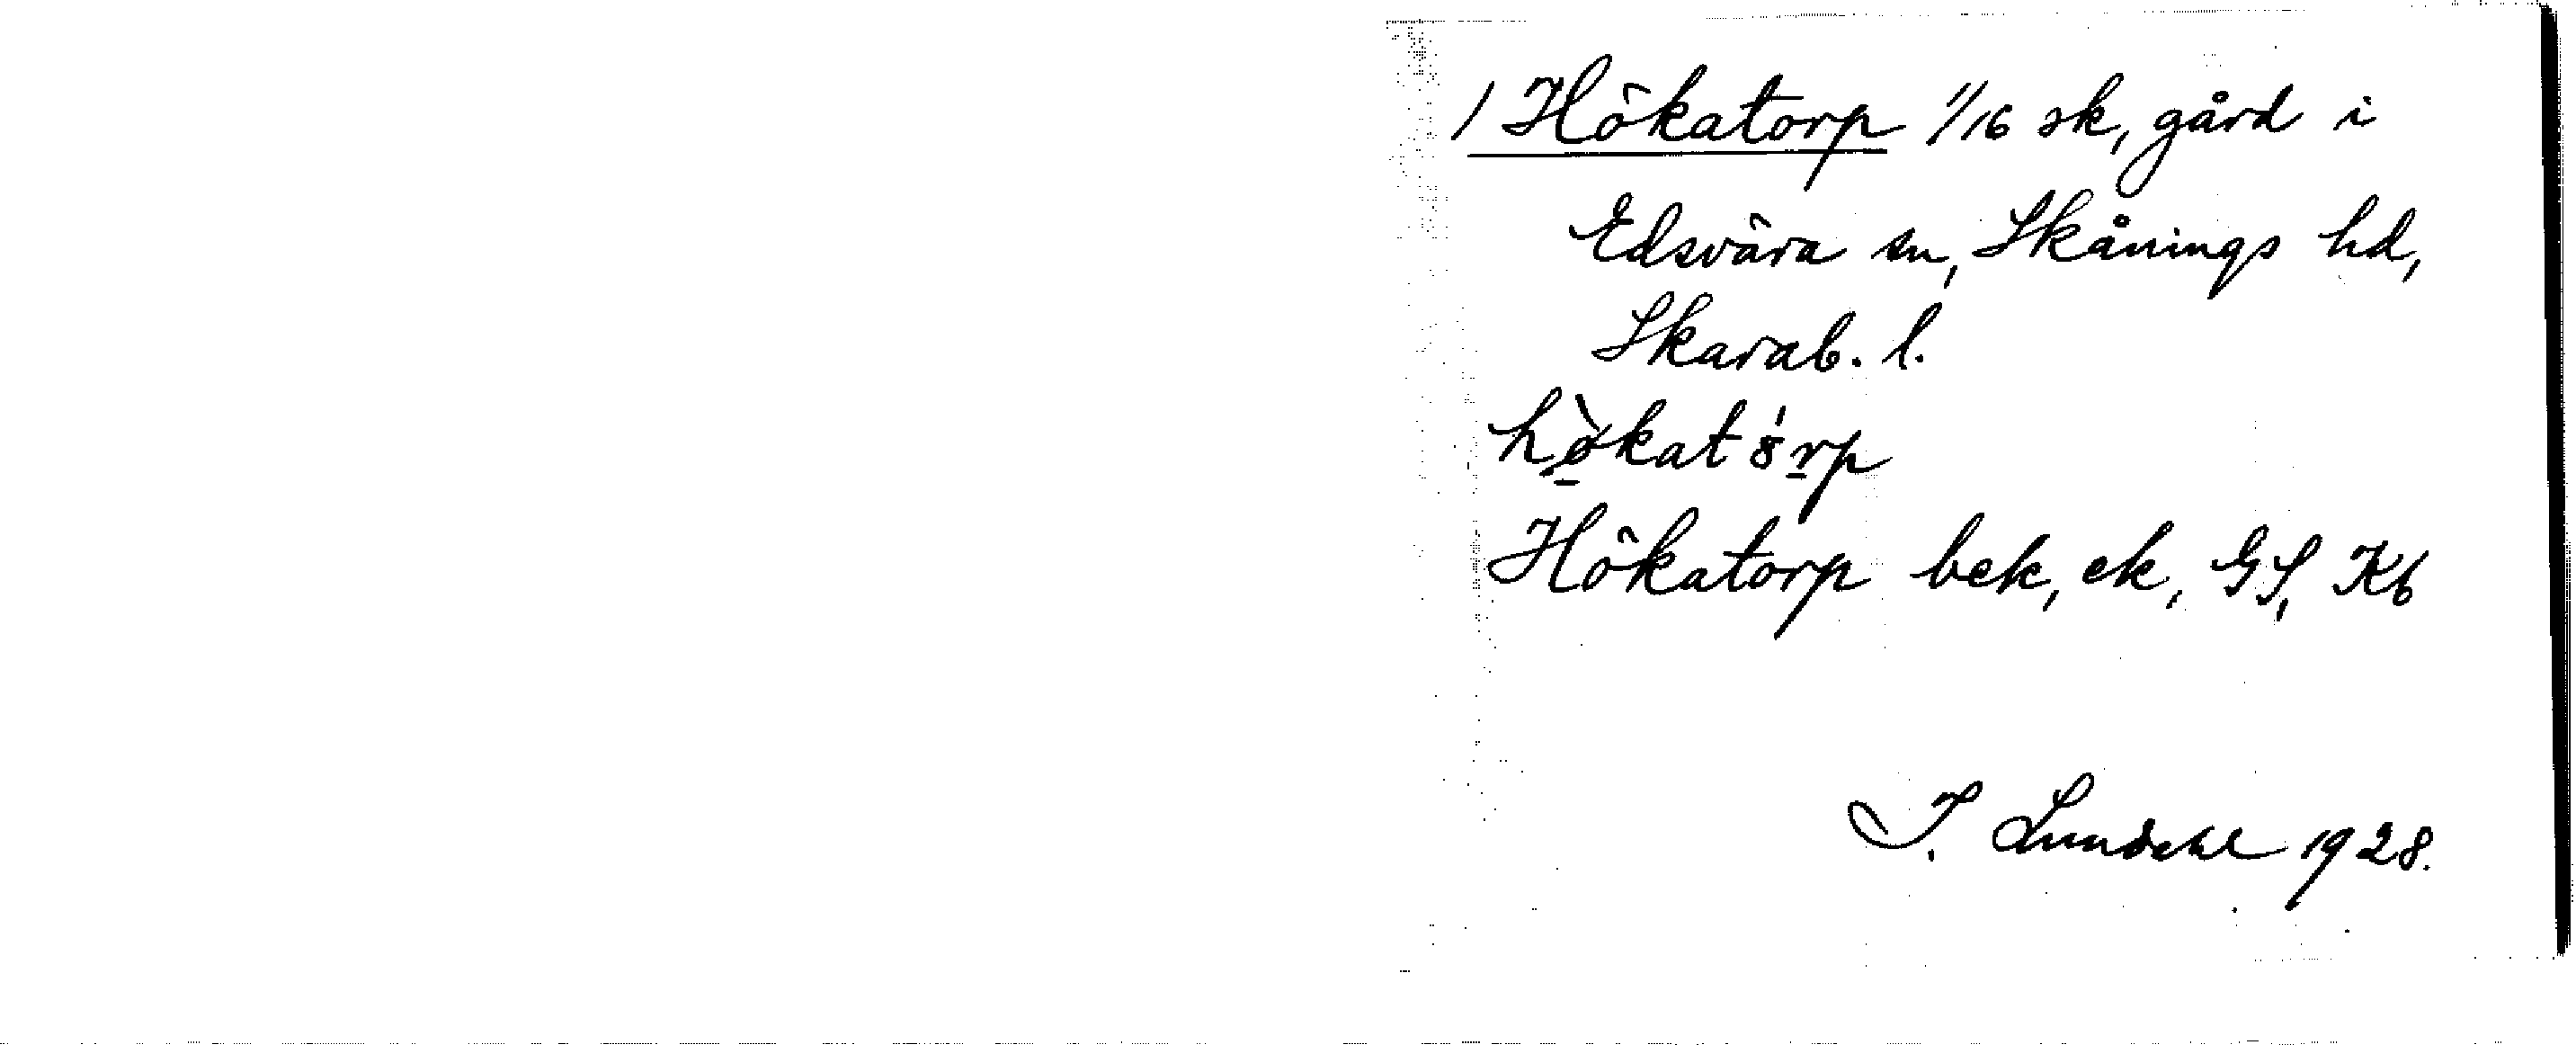 / Hökatorp 1/16 sk, gård i
Edsvära sn, Skånings hd,
Skarab. l.
hø̀kat8́rp
Hökatorp bek, ek, GS, Kb
I. Lundahl 1928.